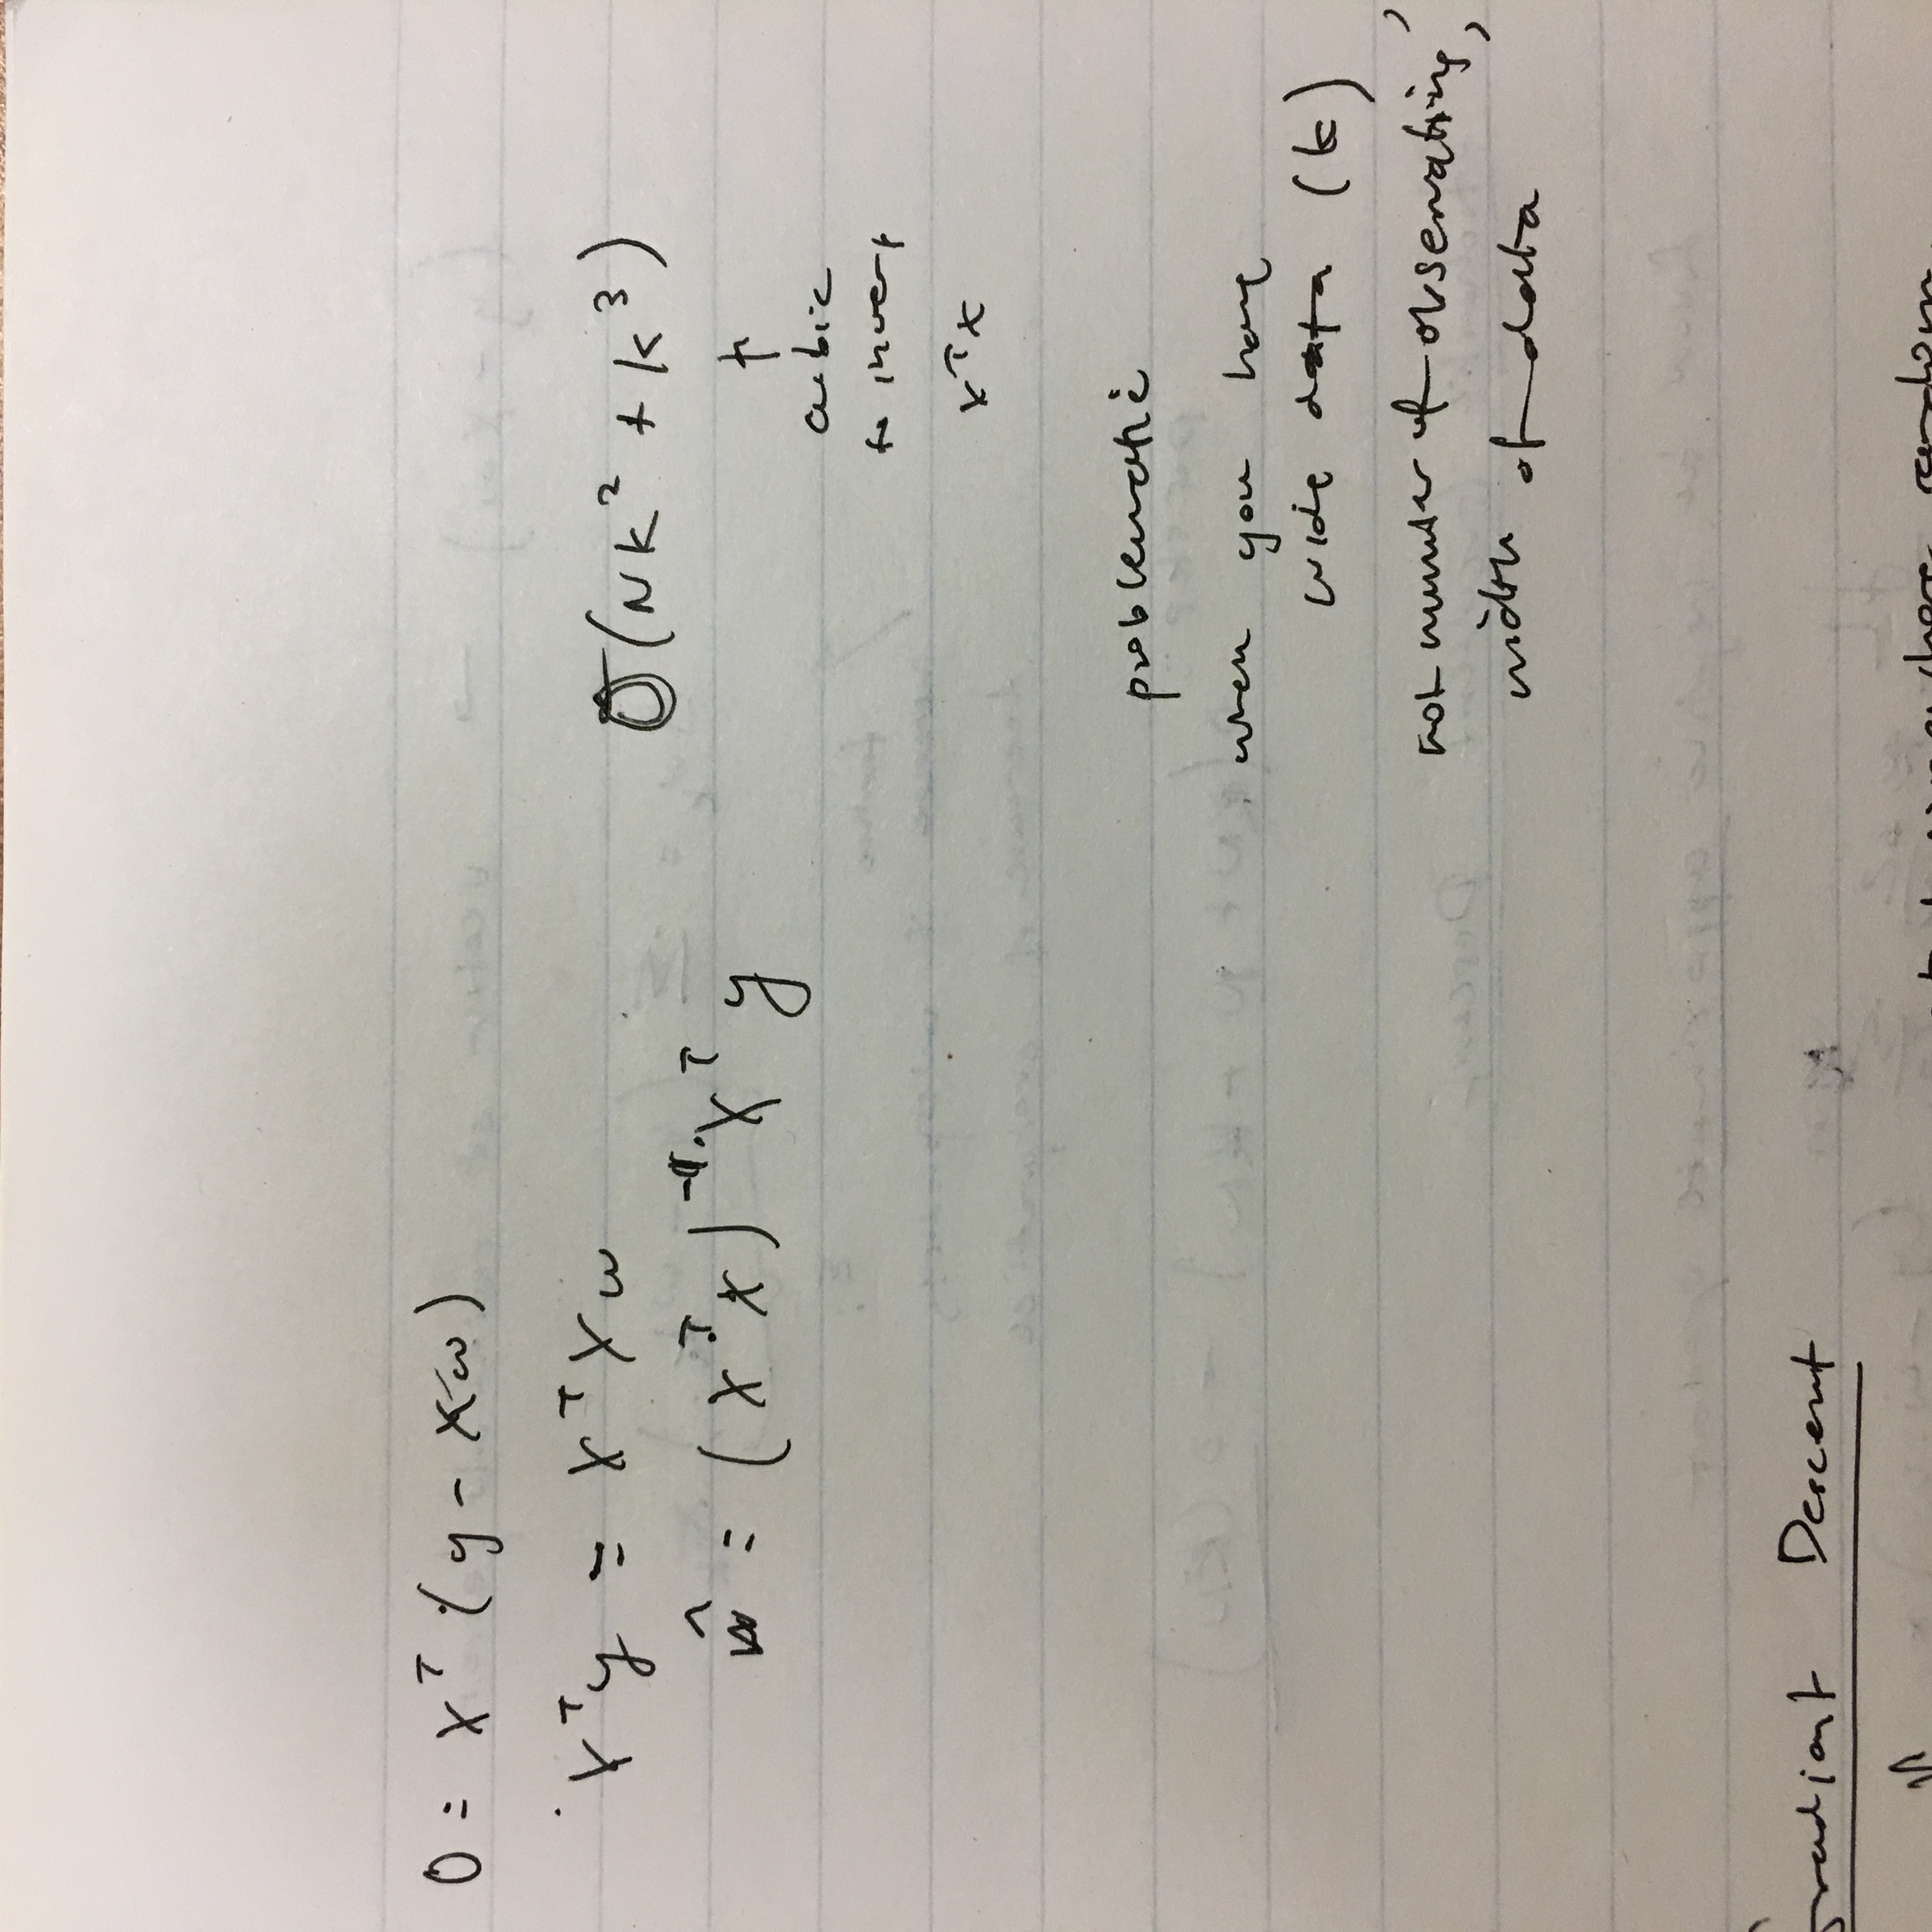 0 = X^T (y - Xw)
X^T y = X^T X w
ŵ = (X^T X)^-1 X^T y
O(NK^2 + K^3)
↑
cubic
to invert
X^T X
problematic
when you have
wide data (k),
not number of observations,
width of data
Gradient Descent
random